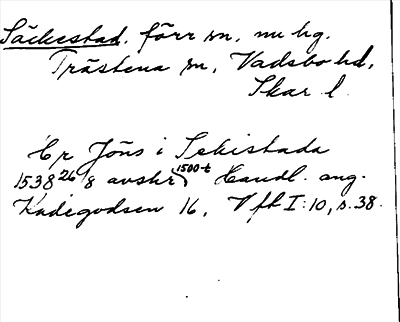 Säckestad, förr sn, nu hg.
Trästena sn, Vadsbo hd,
Skar. l.
Hr Jöns i Sekistada
1538 26/8 avskr 1500-t Handl. ang.
Kadegodsen 16, Vfk I:10, s. 38.